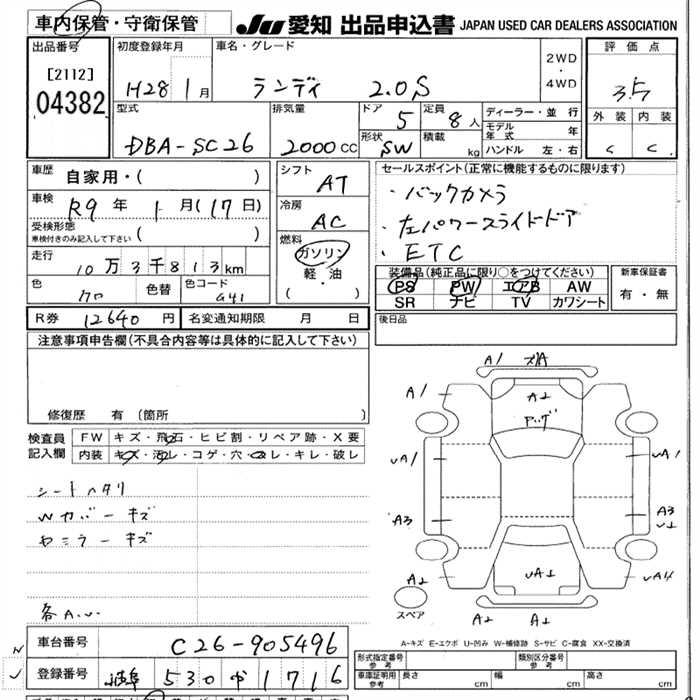 車内保管・守衛保管 JU 愛知 出品申込書 JAPAN USED CAR DEALERS ASSOCIATION
出品番号 初度登録年月 車名・グレード 評価点
[2112] H28 1月 ランディ 2.0S 2WD・4WD 3.5
04382
型式 排気量 ドア 5 定員 8人 ディーラー・並行 外装 内装
DBA-SC26 2000CC 形状 SW 積載 kg モデル年式 年 C C
ハンドル 左・右
車歴 自家用・( ) シフト AT セールスポイント(正常に機能するものに限ります)
車検 R9年 1月(17日) 冷房 AC ・バックカメラ
受検形態 ( ) ・左パワースライドドア
車検付きのみ記入して下さい 燃料 ガソリン ・ETC
走行 10万3千813km 軽・油
色 色替 色コード G41 ( ・ )
装備品(純正品に限り○をつけてください) 新車保証書
PS PW エアB AW 有・無
SR ナビ TV カワシート
R券 12640円 名変通知期限 月 日 後日品
注意事項申告欄(不具合内容等は具体的に記入して下さい)
修復歴 有 (箇所 )
検査員記入欄 FW キズ・飛石・ヒビ割・リペア跡・X要
内装 キズ・汚レ・コゲ・穴・スレ・キレ・破レ
シートヘタリ
Wカバーキズ
A1
A1 A2
A1 A1
A3 A3
A2 A2 A1
スペア
A-キズ E-エクボ U-凹み W-補修跡 S-サビ C-腐食 XX-交換済
車台番号 C26-905496
登録番号 岐阜 530 1716
形式指定番号 参考 類別区分番号 参考
車庫証明用 参考 長さ cm 幅 cm 高さ cm